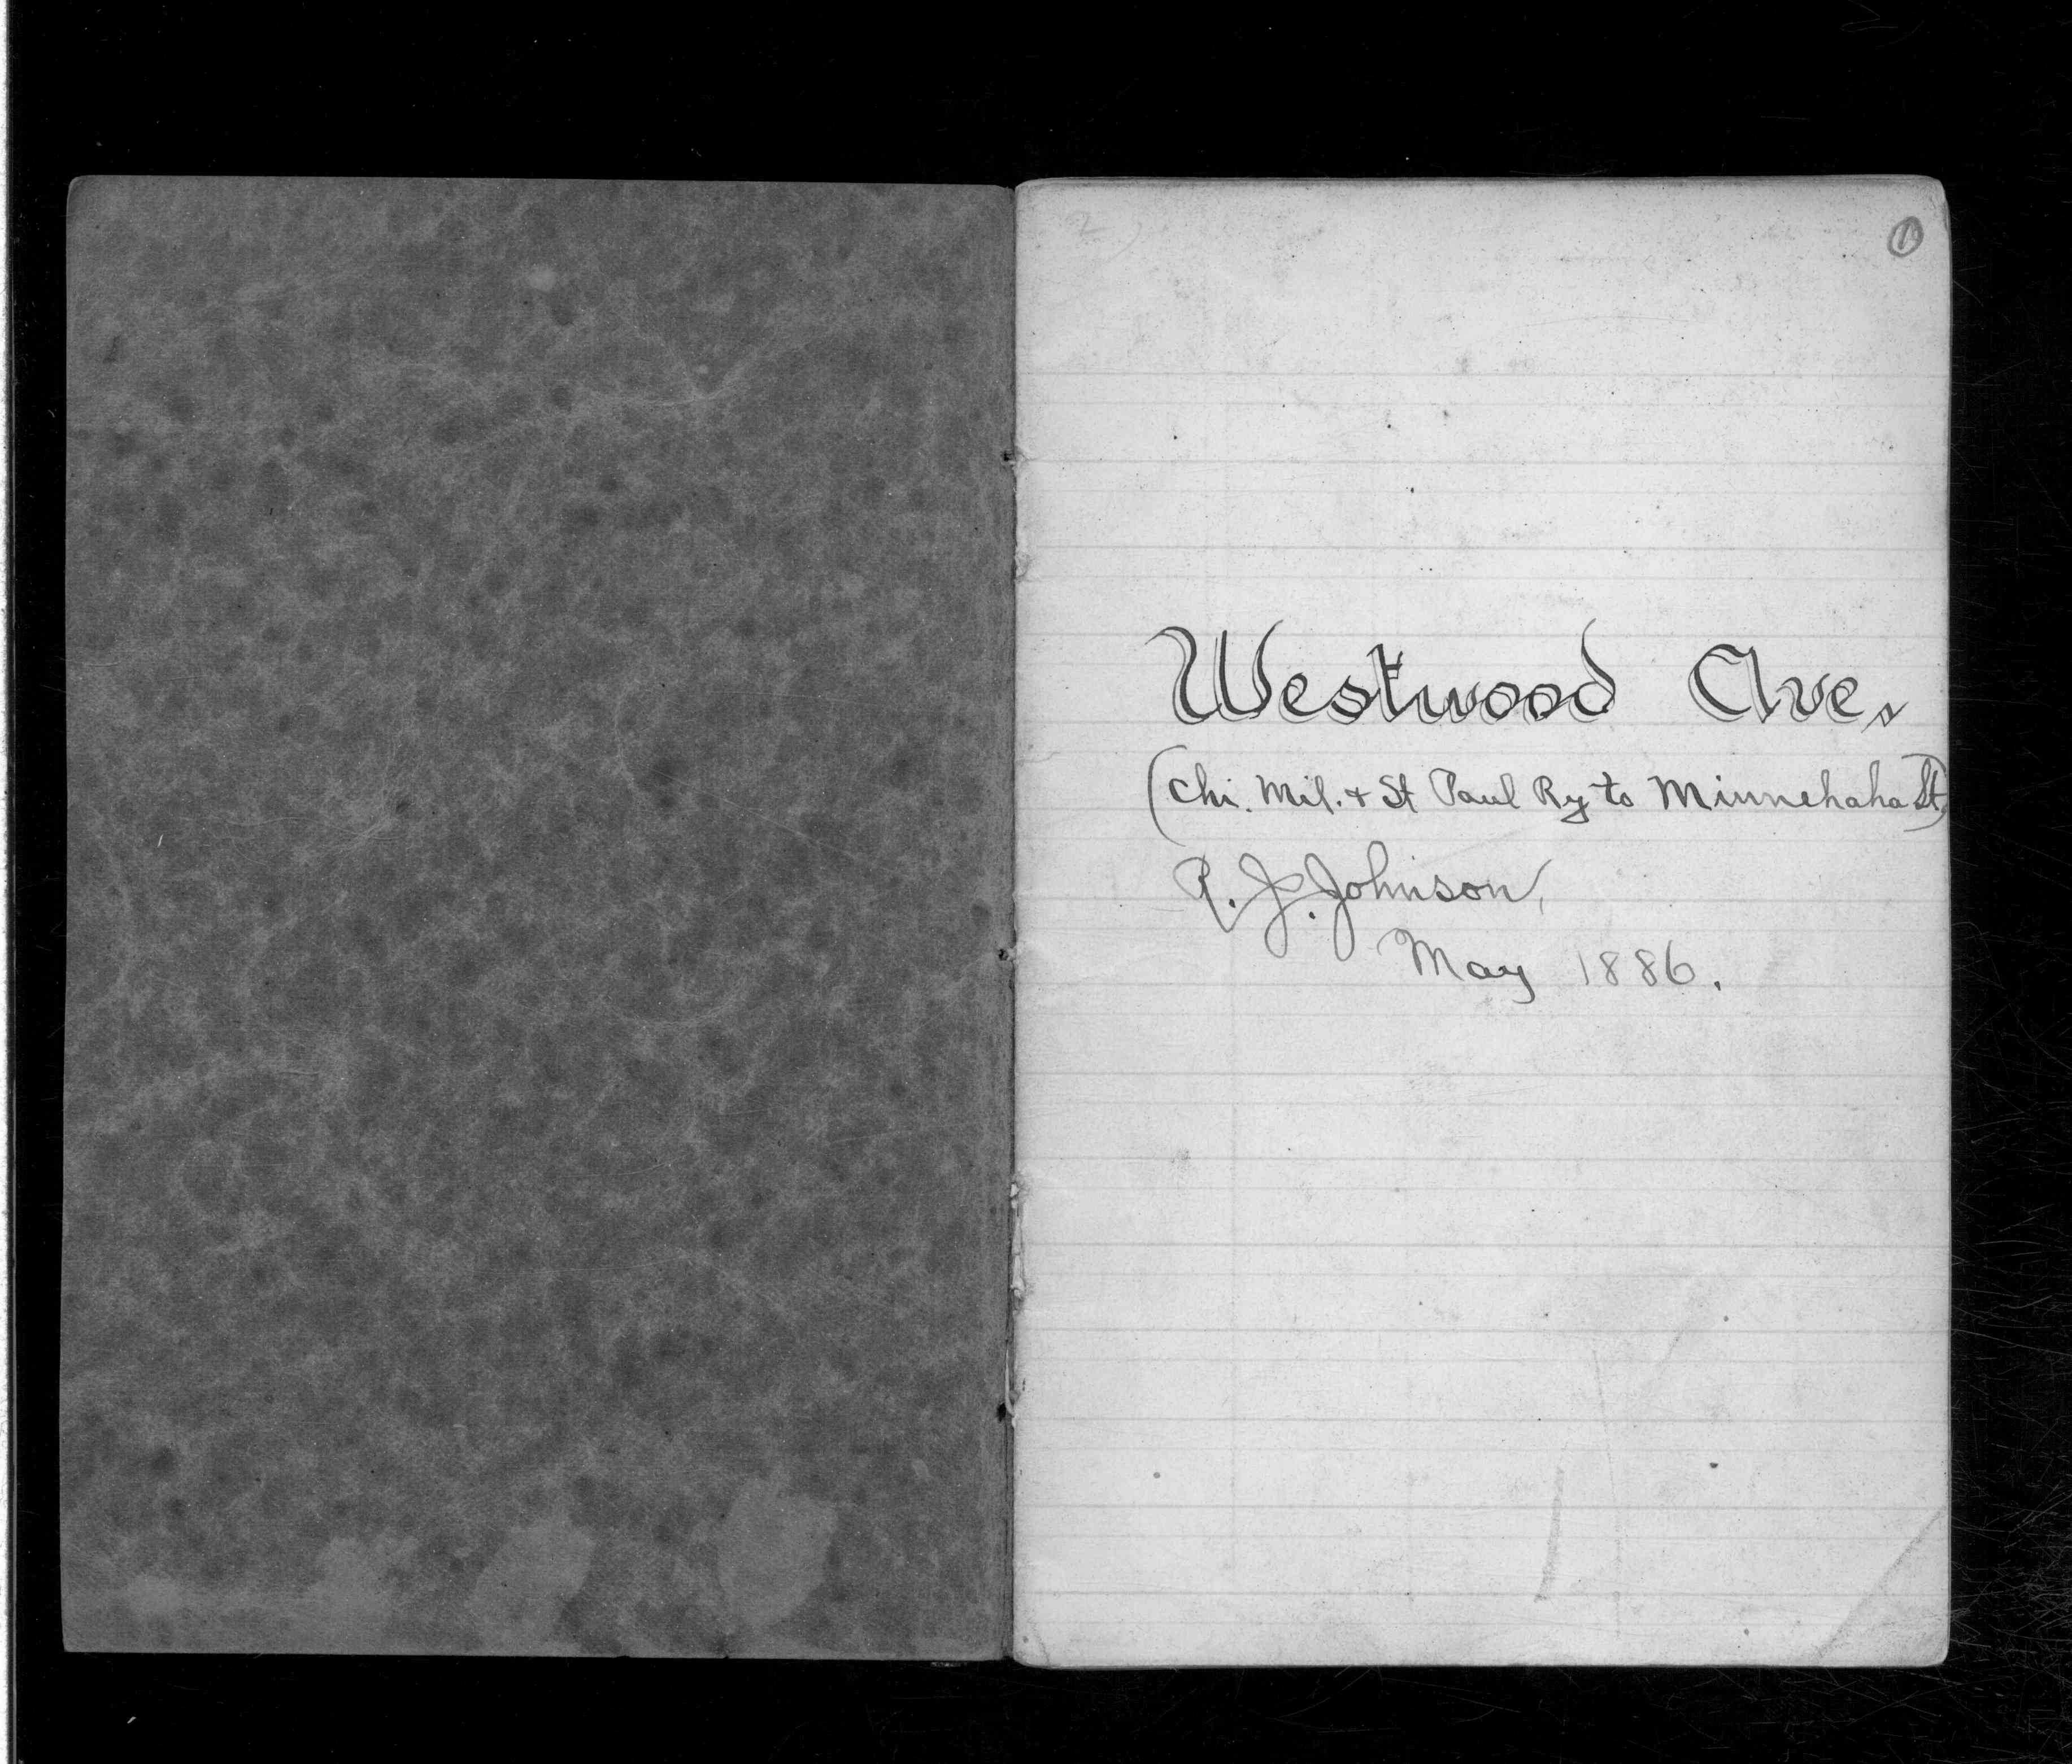 1
Westwood Ave.
(Chi. Mil. + St Paul Ry to Minnehaha St.)
J. Johnson,
May 1886.